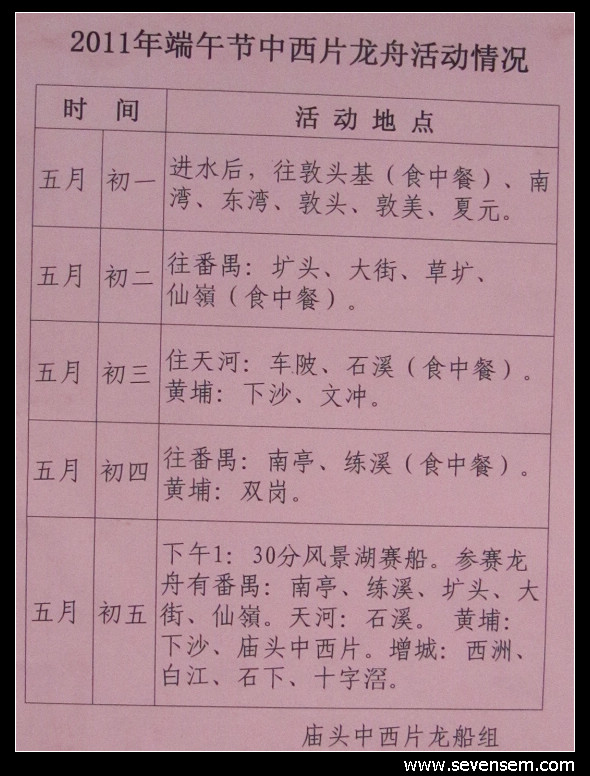 2011年端午节中西片龙舟活动情况
时 间 活 动 地 点
五月 初一 进水后，往敦头基（食中餐）、南
湾、东湾、敦头、敦美、夏元。
五月 初二 往番禺：圹头、大街、草圹、
仙嶺（食中餐）。
五月 初三 住天河：车陂、石溪（食中餐）。
黄埔：下沙、文冲。
五月 初四 往番禺：南亭、练溪（食中餐）。
黄埔：双岗。
五月 初五 下午1：30分风景湖赛船。参赛龙
舟有番禺：南亭、练溪、圹头、大
街、仙嶺。天河：石溪。 黄埔：
下沙、庙头中西片。增城：西洲、
白江、石下、十字滘。
庙头中西片龙船组
www.sevensem.com